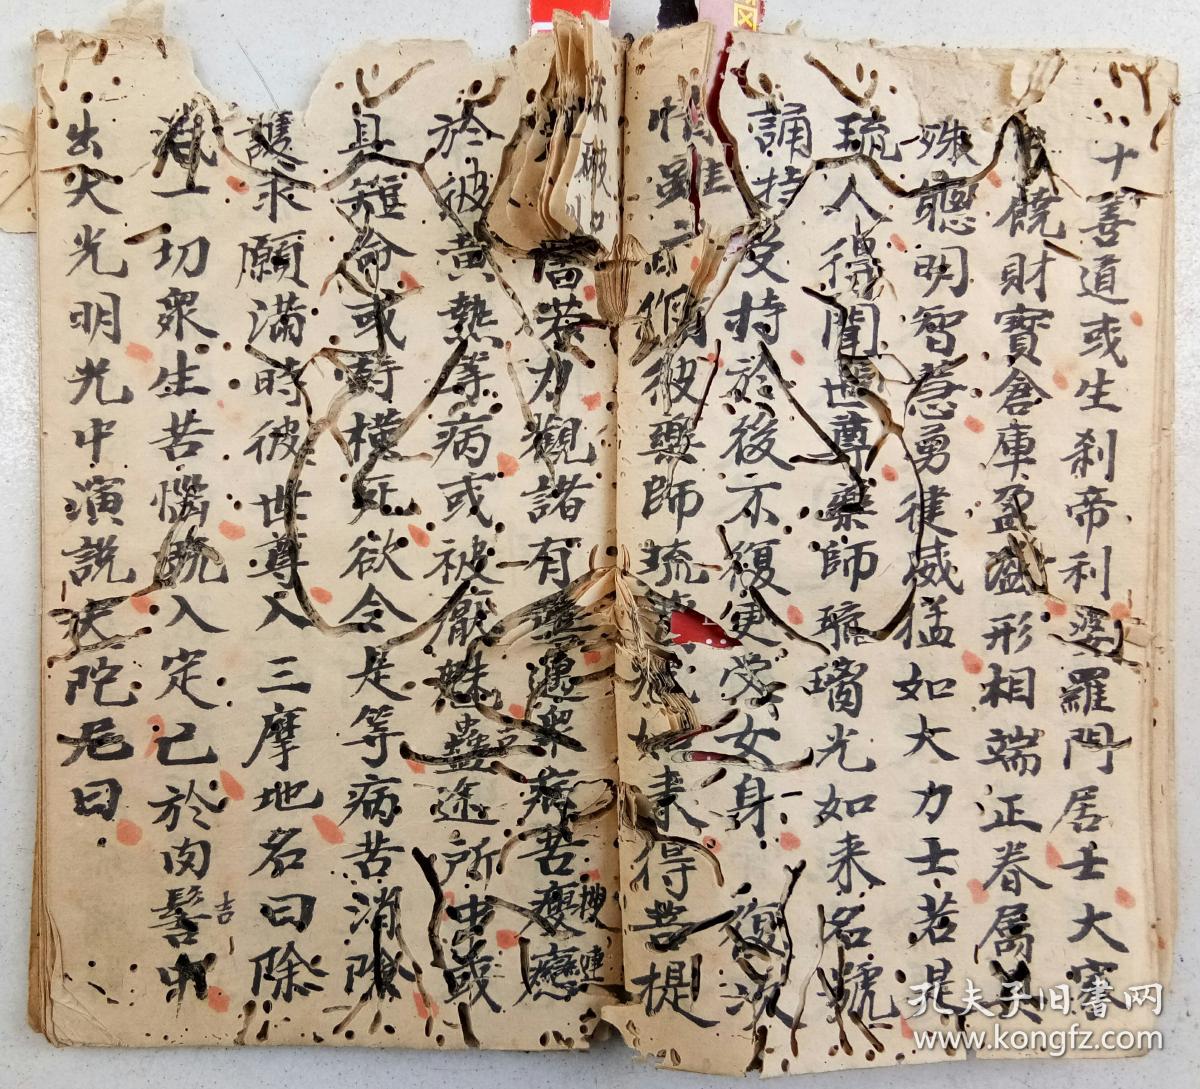 十善道或生剎帝利婆羅門居士大家
饒財寶倉庫盈溢形相端正眷屬具
殊聰明智慧勇健威猛如大力士若是
琉人得聞世尊藥師璃光如來名號
誦持受持於後不復更受女身 復次
雖 彼藥師琉 來得菩提
若力觀諸有 眾病苦瘦
於彼黃熱等病或被厭魅蠱 所中或
且短命或時橫死欲令是等病苦消除
護求願滿時彼世尊入 三摩地名曰除
滅一切眾生苦惱既入定已於肉髻中
出大光明光中演說 陀尼曰
吉
孔夫子旧書网
www.kongfz.com